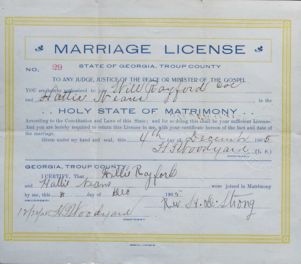 MARRIAGE LICENSE
STATE OF GEORGIA, TROUP COUNTY
NO. 29
TO ANY JUDGE, JUSTICE OF THE PEACE OR MINISTER OF THE GOSPEL
YOU are hereby authorized to join Will Rayford Col
and Hattie Evans in the
HOLY STATE OF MATRIMONY
According to the Constitution and Laws of this State; and for so doing this shall be your sufficient License.
And you are hereby required to return this License to me, with your certificate hereon of the fact and date
of the marriage.
Given under my hand and seal, this 4th December 1905
H T Woodyard (L. S.)
GEORGIA, TROUP COUNTY
I CERTIFY, That Willis Rayford
and Hattie Evans were joined in Matrimony
by me, this day of Dec 1905
Rev H. D. Strong
H T Woodyard